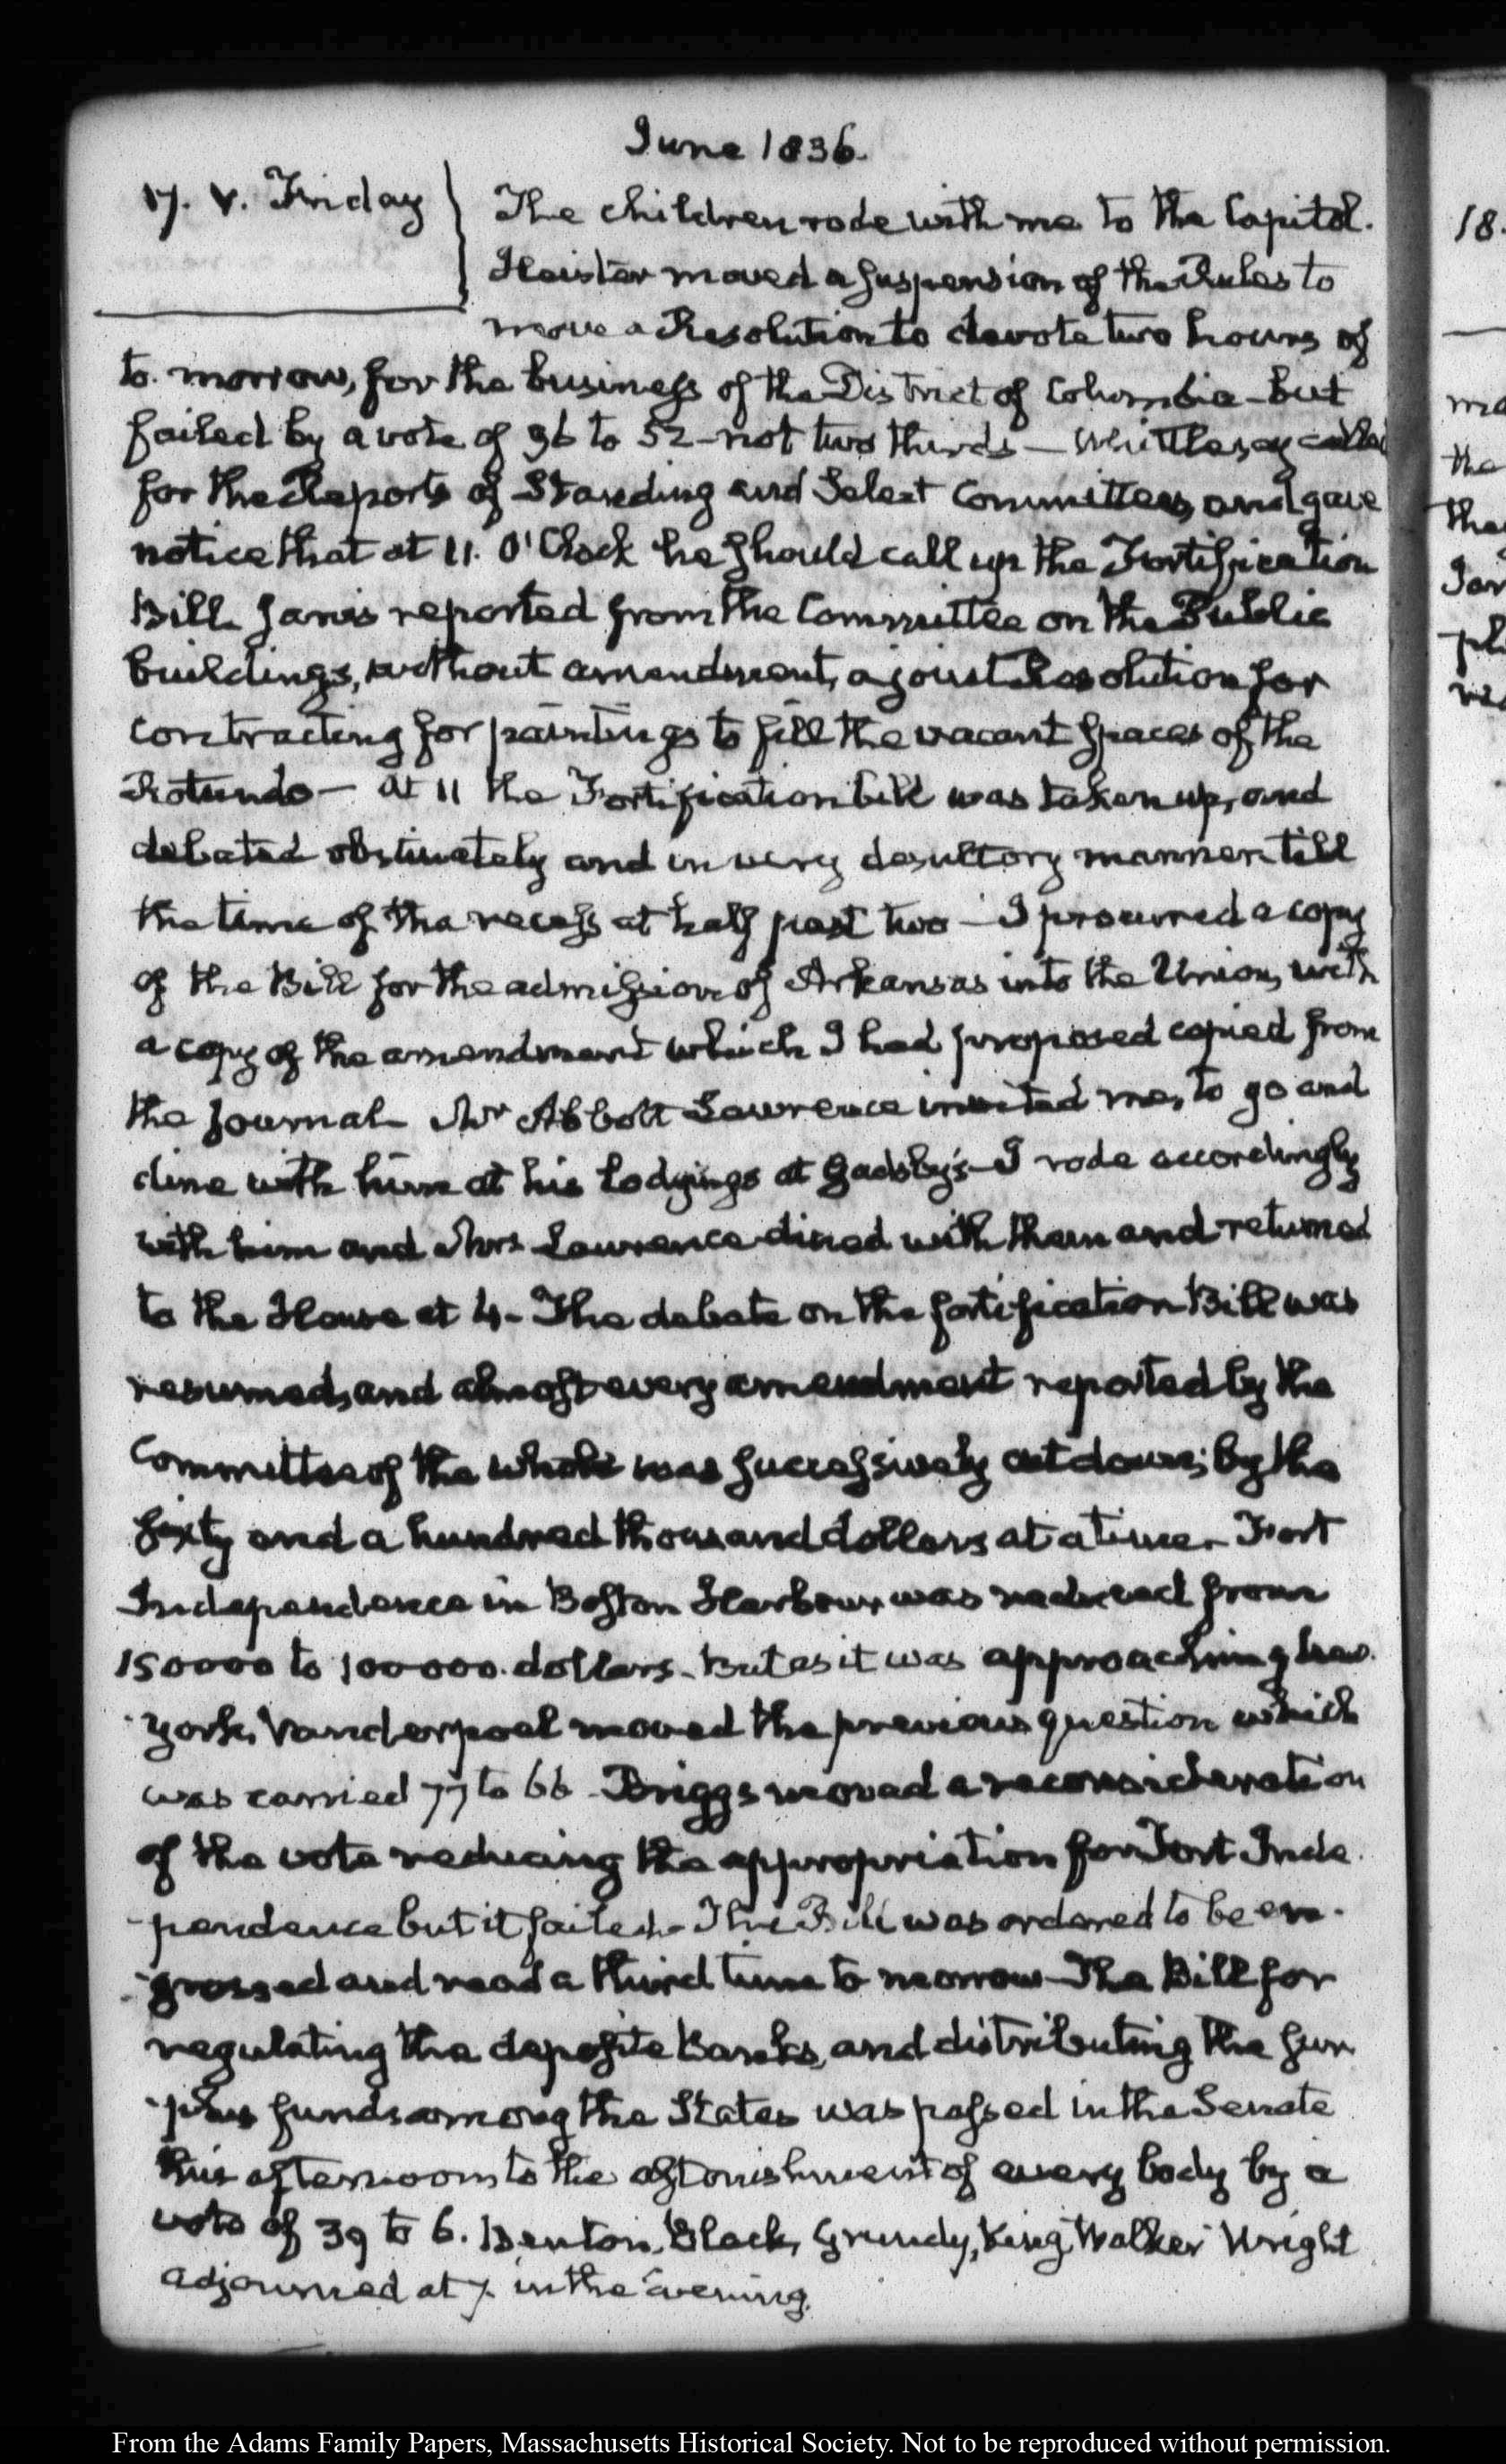 June 1836.
17. V. Friday
The children rode with me to the Capitol.
Heister moved a suspension of the Rules to
move a Resolution to devote two hours of
to-morrow, for the business of the District of Columbia - but
failed by a vote of 96 to 52 - not two thirds - Whittlesey called
for the Reports of Standing and Select Committees, and gave
notice that at 11. O'Clock he should call up the Fortification
Bill. Jarvis reported from the Committee on the Public
buildings, without amendment, a joint Resolution for
contracting for paintings to fill the vacant spaces of the
Rotundo - at 11 the Fortification bill was taken up, and
debated obstinately and in very desultory manner till
the time of the recess at half past two - I procured a copy
of the Bill for the admission of Arkansas into the Union, with
a copy of the amendment which I had proposed copied from
the journal - Mr Abbott Lawrence invited me, to go and
dine with him at his lodgings at Gadsby's - I rode accordingly
with him and Mrs Lawrence dined with them and returned
to the House at 4 - The debate on the fortification Bill was
resumed, and almost every amendment reported by the
Committee of the whole was successively cut down; by the
fifty and a hundred thousand dollars at a time - Fort
Independence in Boston Harbour, was reduced from
150000 to 100000. dollars - But as it was approaching New-
-York, Vanderpoel moved the previous question which
was carried 77 to 66 - Briggs moved a reconsideration
of the vote reducing the appropriation for Fort Inde-
-pendence but it failed - The Bill was ordered to be en-
-grossed and read a third time to morrow - The Bill for
regulating the deposite Banks, and distributing the sur-
-plus funds among the States was passed in the Senate
this afternoon, to the astonishment of every body by a
vote of 39 to 6. Benton, Black, Grundy, King, Walker Wright
adjourned at 7. in the evening.
18.
the
From the Adams Family Papers, Massachusetts Historical Society. Not to be reproduced without permission.